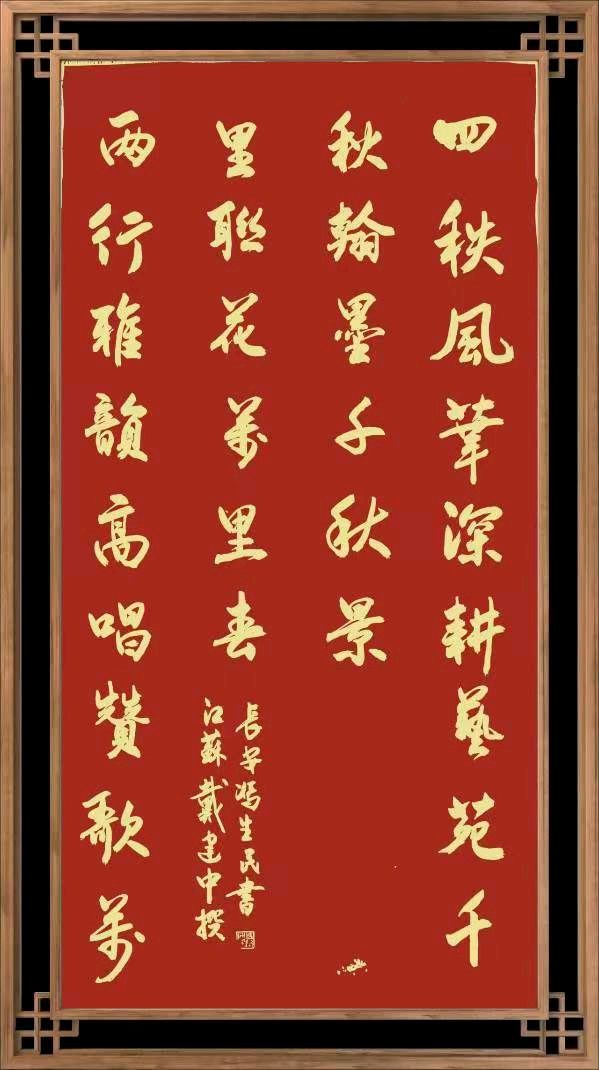 四秩風華深耕藝苑千
秋翰墨千秋景
两行雅韻高唱贊歌萬
里聯花萬里春
江蘇戴建中撰
長安馮生民書